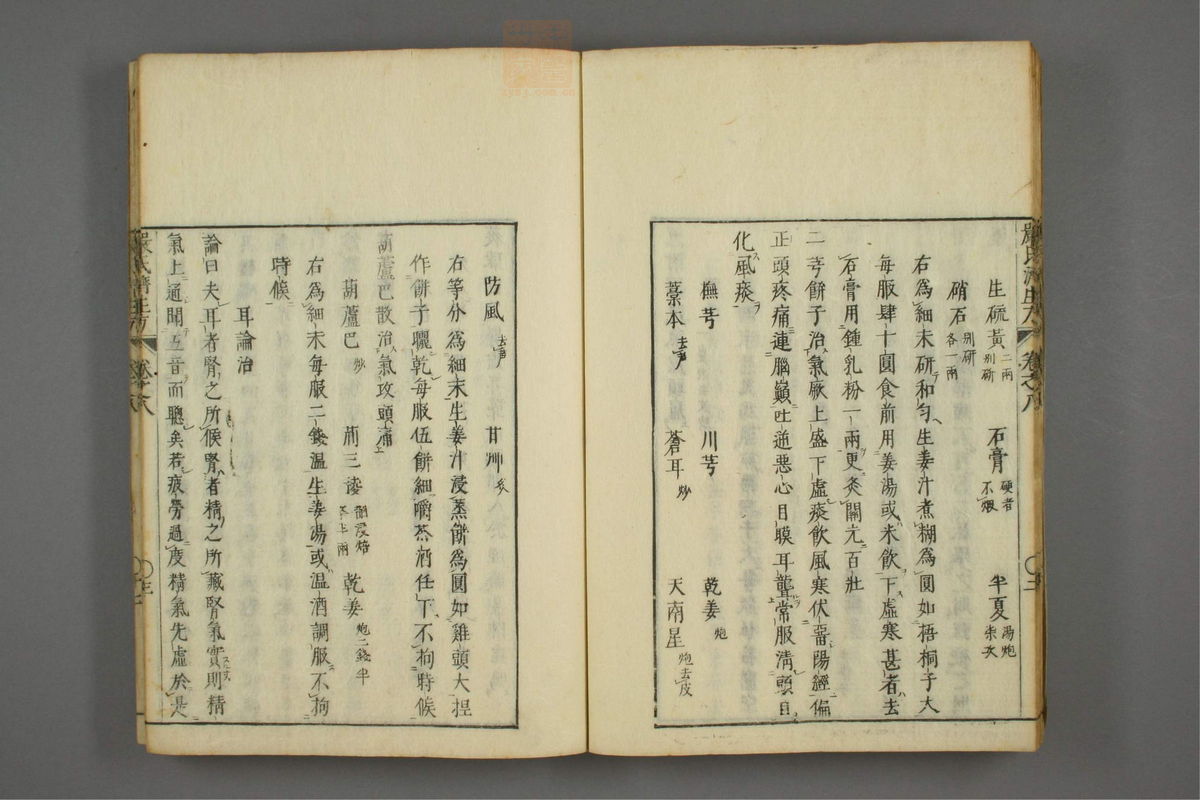 嚴氏濟生方 卷之八
生硫黃二兩別研 石膏硬者不煅 半夏湯炮柒次
硝石別研各一兩
右為細末研和勻生姜汁煮糊為圓如梧桐子大
每服肆十圓食前用姜湯或米飲下虛寒甚者去
石膏用鍾乳粉一兩更灸關元百壯
二芎餅子治氣厥上盛下虛痰飲風寒伏留陽經偏
正頭疼痛連腦巔吐逆惡心目瞑耳聾常服清頭目
化風痰
撫芎 川芎 乾姜炮
藁本去芦 蒼耳炒 天南星炮去皮
防風去芦 甘艸炙
右等分為細末生姜汁浸蒸餅為圓如雞頭大捏
作餅子曬乾每服伍餅細嚼茶酒任下不拘時候
葫蘆巴散治氣攻頭痛
葫蘆巴炒 荊三稜醋浸焙各半兩 乾姜炮二錢半
右為細末每服二錢溫生姜湯或溫酒調服不拘
時候
耳論治
論曰夫耳者腎之所候腎者精之所藏腎氣實則精
氣上通聞五音而聰矣若疲勞過度精氣先虛於是
嚴氏濟生方 卷之八